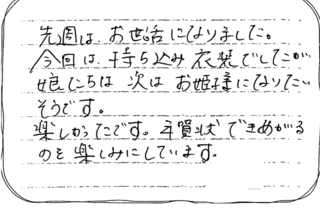 先週は、お世話になりました。
今回は、持ち込み衣装でしたが
娘たちは 次は お姫様になりたい
そうです。
楽しかったです。年賀状できあがる
のを楽しみにしています。